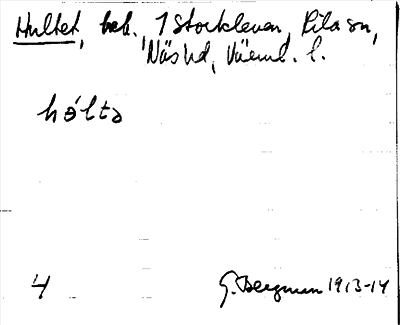 Hultet, beb. 1 Stockleven, Lilla sn,
Näs hd, Värml. l.
hólta
4 G. Bergman 1913-14